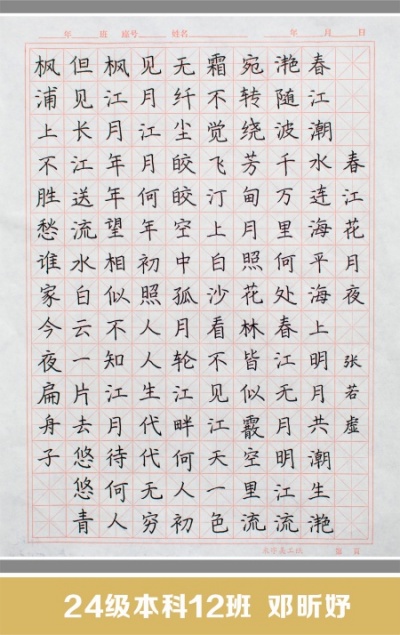 年 班 座号 姓名 年 月 日
春江花月夜 张若虚
春江潮水连海平海上明月共潮生滟
滟随波千万里何处春江无月明江流
宛转绕芳甸月照花林皆似霰空里流
霜不觉飞汀上白沙看不见江天一色
无纤尘皎皎空中孤月轮江畔何人初
见月江月何年初照人人生代代无穷
枫江月年年望相似不知江月待何人
但见长江送流水白云一片去悠悠青
枫浦上不胜愁谁家今夜扁舟子
24级本科12班 邓昕妤